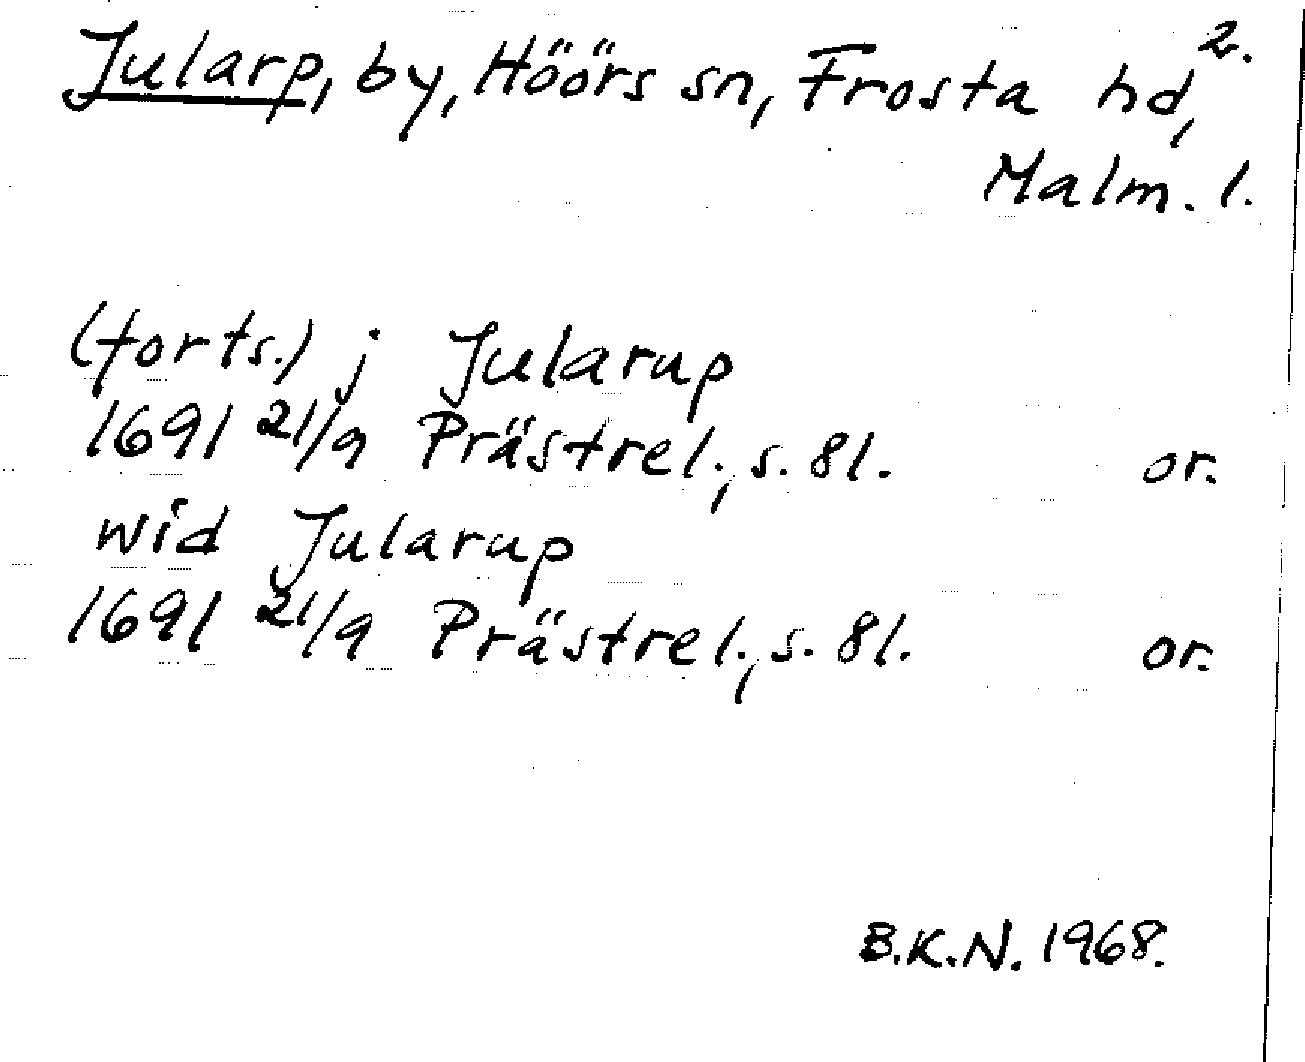 Jularp, by, Höörs sn, Frosta hd, 2.
Malm. l.
(forts.) j Jularup
1691 21/9 Prästrel., s. 81. or.
wid Jularup
1691 21/9 Prästrel., s. 81. or.
B.K.N. 1968.